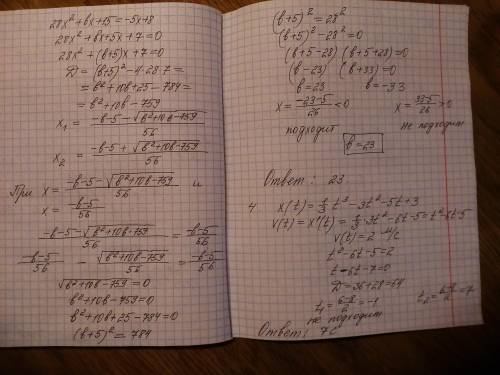 28x² + bx + 15 = -5x + 8
28x² + bx + 5x + 7 = 0
28x² + (b+5)x + 7 = 0
D = (b+5)² - 4·28·7 =
= b² + 10b + 25 - 784 =
= b² + 10b - 759
x₁ = (-b-5-√(b²+10b-759))/56
x₂ = (-b-5+√(b²+10b-759))/56
При x = (-b-5-√(b²+10b-759))/56 и
x = (-b-5)/56
(-b-5-√(b²+10b-759))/56 = (-b-5)/56
(-b-5)/56 - √(b²+10b-759)/56 = (-b-5)/56
√(b²+10b-759) = 0
b² + 10b - 759 = 0
b² + 10b + 25 - 784 = 0
(b+5)² = 784
(b+5)² = 28²
(b+5)² - 28² = 0
(b+5-28)(b+5+28) = 0
(b-23)(b+33) = 0
b = 23 b = -33
x = (-23-5)/56 < 0 x = (33-5)/56 > 0
подходит не подходит
b = 23
Ответ: 23
4 x(t) = 1/3 t³ - 3t² - 5t + 3
v(t) = x'(t) = 1/3·3t² - 6t - 5 = t² - 6t - 5
v(t) = 2 м/с
t² - 6t - 5 = 2
t - 6t - 7 = 0
D = 36 + 28 = 64
t₁ = (6-8)/2 = -1 t₂ = (6+8)/2 = 7
не подходит
Ответ: 7с